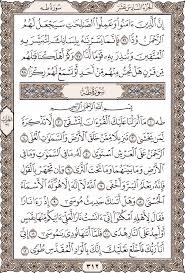 الجزء السادس عشر سورة طه
إِنَّ ٱلَّذِينَ ءَامَنُوا۟ وَعَمِلُوا۟ ٱلصَّٰلِحَٰتِ سَيَجْعَلُ لَهُمُ
ٱلرَّحْمَٰنُ وُدًّا ٩٦ فَإِنَّمَا يَسَّرْنَٰهُ بِلِسَانِكَ لِتُبَشِّرَ بِهِ
ٱلْمُتَّقِينَ وَتُنذِرَ بِهِۦ قَوْمًا لُّدًّا ٩٧ وَكَمْ أَهْلَكْنَا قَبْلَهُم
مِّن قَرْنٍ هَلْ تُحِسُّ مِنْهُم مِّنْ أَحَدٍ أَوْ تَسْمَعُ لَهُمْ رِكْزًۢا ٩٨
سورة طه
بِسْمِ ٱللَّهِ ٱلرَّحْمَٰنِ ٱلرَّحِيمِ
طه ١ مَآ أَنزَلْنَا عَلَيْكَ ٱلْقُرْءَانَ لِتَشْقَىٰٓ ٢ إِلَّا تَذْكِرَةً لِّمَن
يَخْشَىٰ ٣ تَنزِيلًا مِّمَّنْ خَلَقَ ٱلْأَرْضَ وَٱلسَّمَٰوَٰتِ ٱلْعُلَى ٤
ٱلرَّحْمَٰنُ عَلَى ٱلْعَرْشِ ٱسْتَوَىٰ ٥ لَهُۥ مَا فِى ٱلسَّمَٰوَٰتِ وَمَا فِى
ٱلْأَرْضِ وَمَا بَيْنَهُمَا وَمَا تَحْتَ ٱلثَّرَىٰ ٦ وَإِن تَجْهَرْ بِٱلْقَوْلِ
فَإِنَّهُۥ يَعْلَمُ ٱلسِّرَّ وَأَخْفَى ٧ ٱللَّهُ لَآ إِلَٰهَ إِلَّا هُوَ لَهُ ٱلْأَسْمَآءُ
ٱلْحُسْنَىٰ ٨ وَهَلْ أَتَىٰكَ حَدِيثُ مُوسَىٰٓ ٩ إِذْ رَءَا نَارًا
فَقَالَ لِأَهْلِهِ ٱمْكُثُوٓا۟ إِنِّىٓ ءَانَسْتُ نَارًا لَّعَلِّىٓ ءَاتِيكُم مِّنْهَا
بِقَبَسٍ أَوْ أَجِدُ عَلَى ٱلنَّارِ هُدًى ١٠ فَلَمَّآ أَتَىٰهَا نُودِىَ يَٰمُوسَىٰٓ ١١
إِنِّىٓ أَنَا۠ رَبُّكَ فَٱخْلَعْ نَعْلَيْكَ إِنَّكَ بِٱلْوَادِ ٱلْمُقَدَّسِ طُوًى ١٢
٣١٢